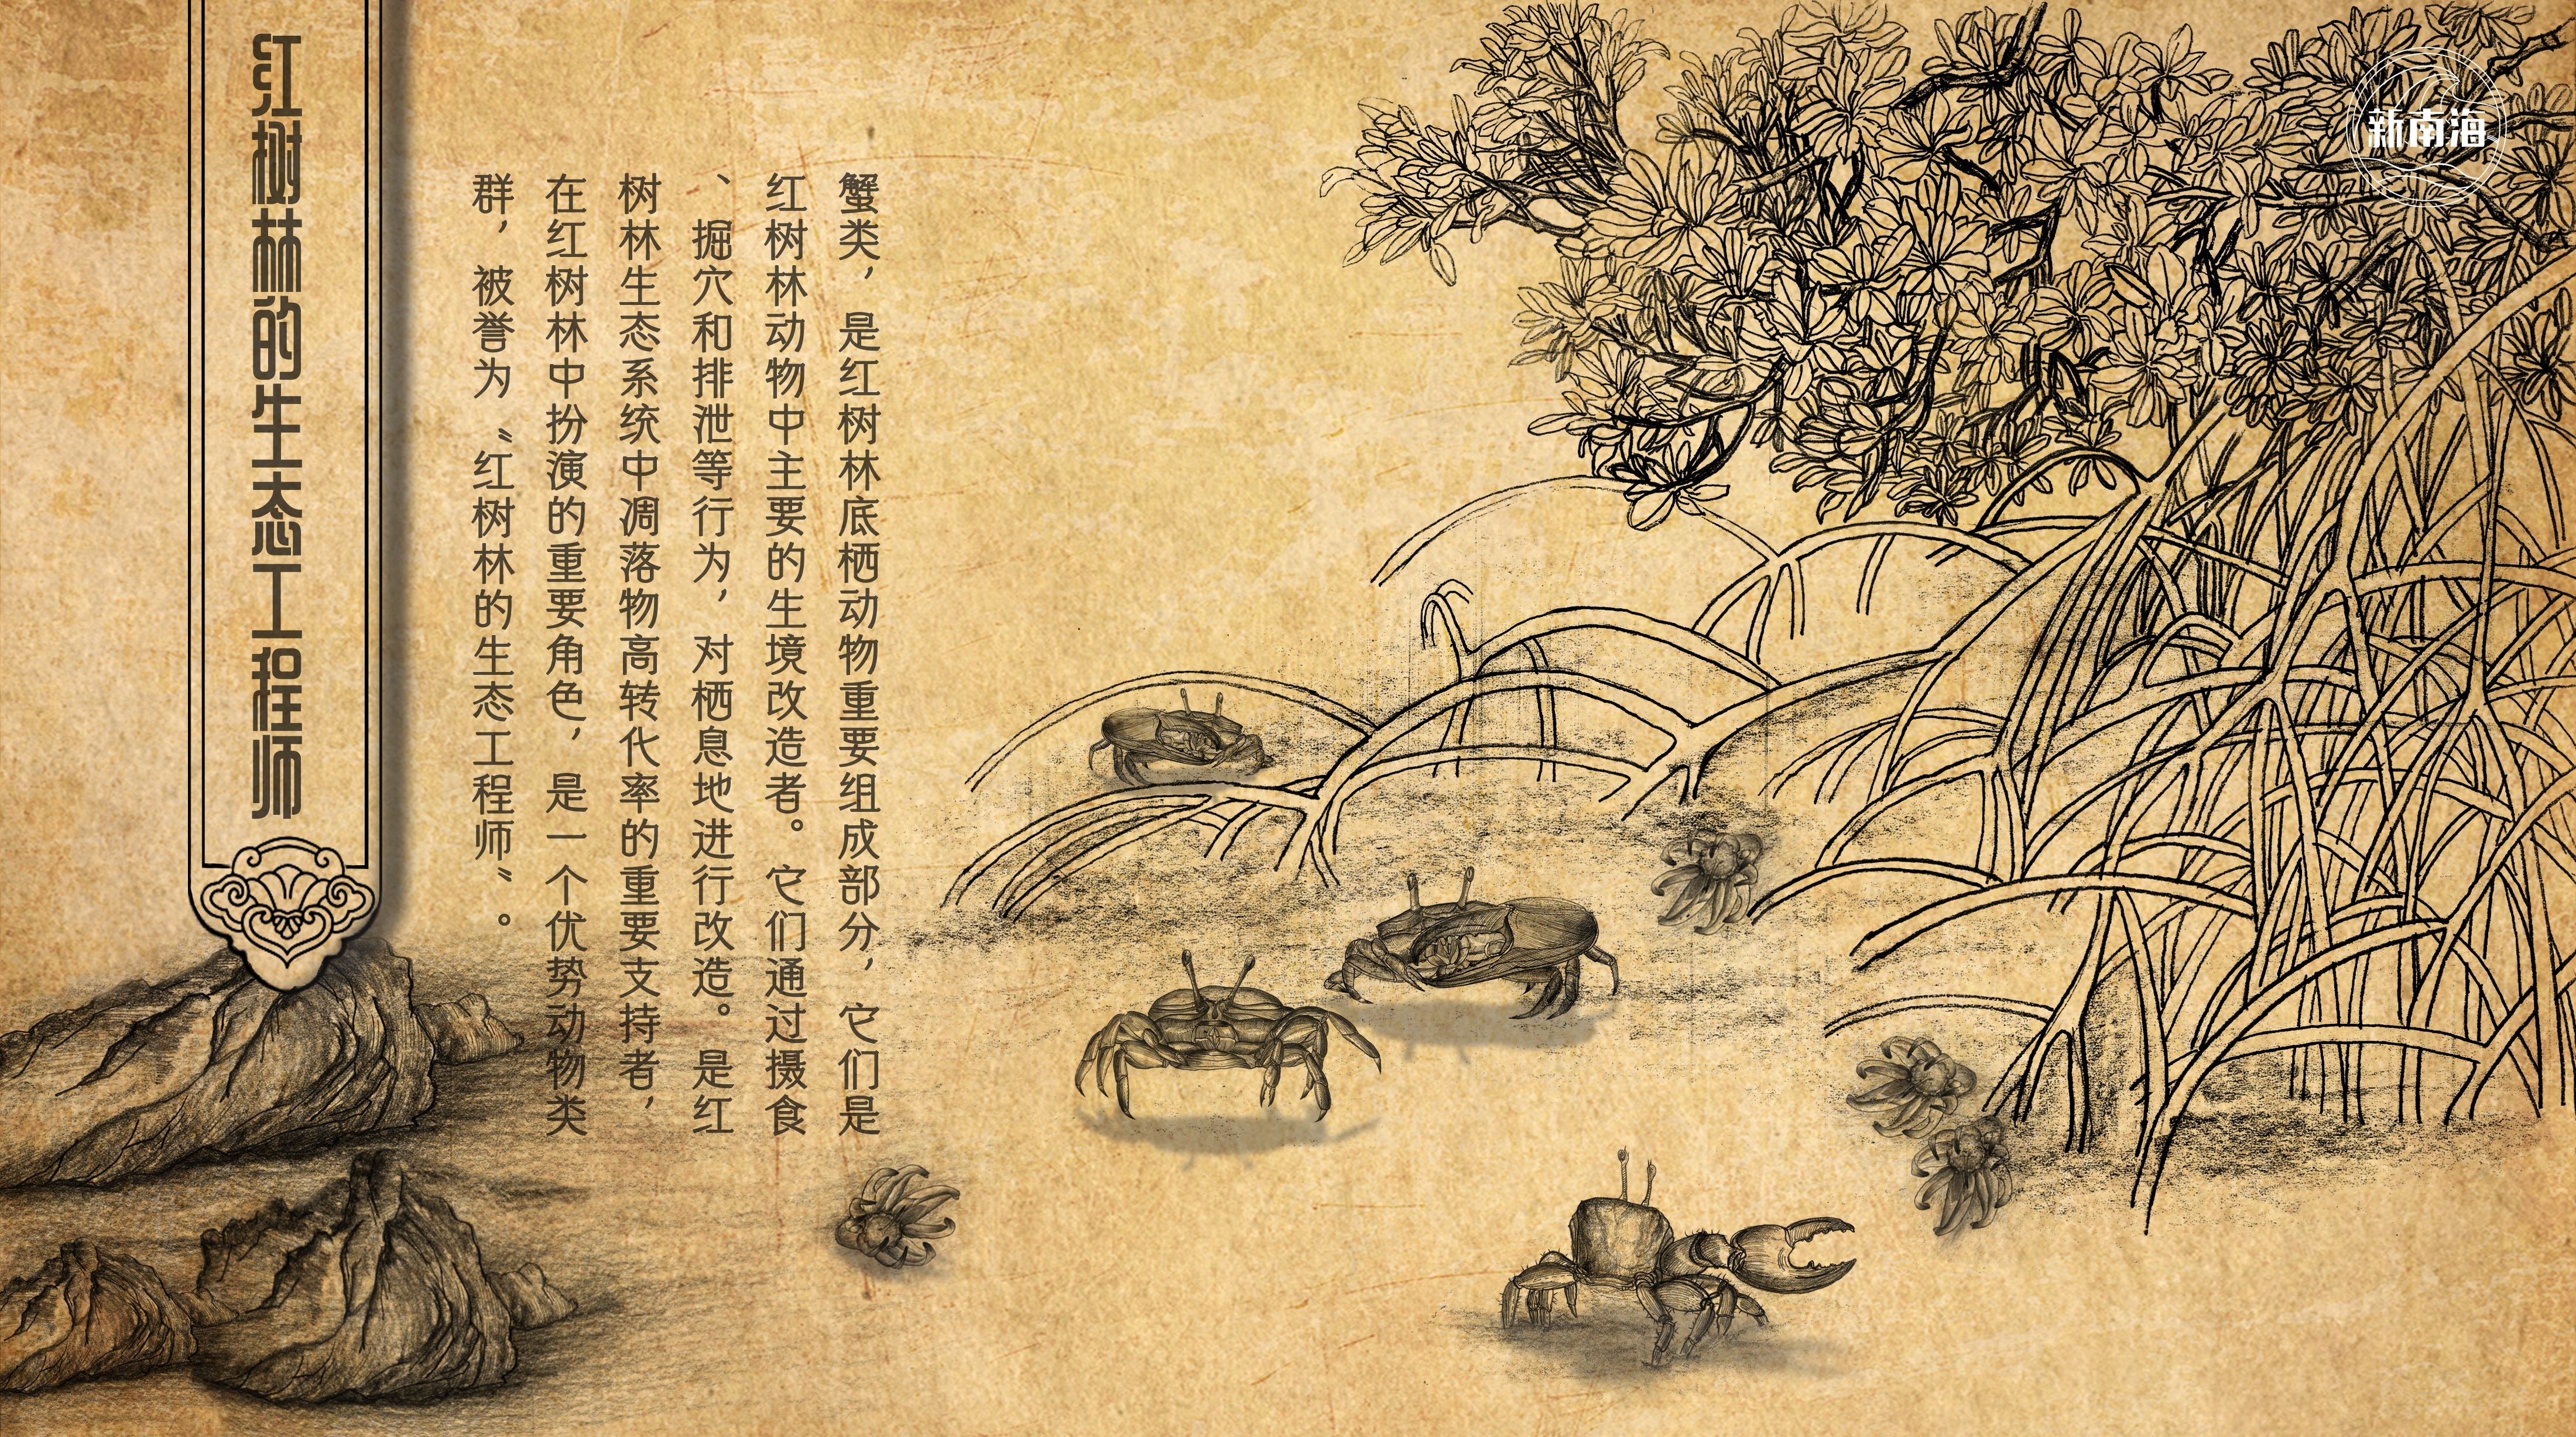 红树林的生态工程师
蟹类，是红树林底栖动物重要组成部分，它们是
红树林动物中主要的生境改造者。它们通过摄食
、掘穴和排泄等行为，对栖息地进行改造。是红
树林生态系统中凋落物高转代率的重要支持者，
在红树林中扮演的重要角色，是一个优势动物类
群，被誉为〝红树林的生态工程师〞。
新南海